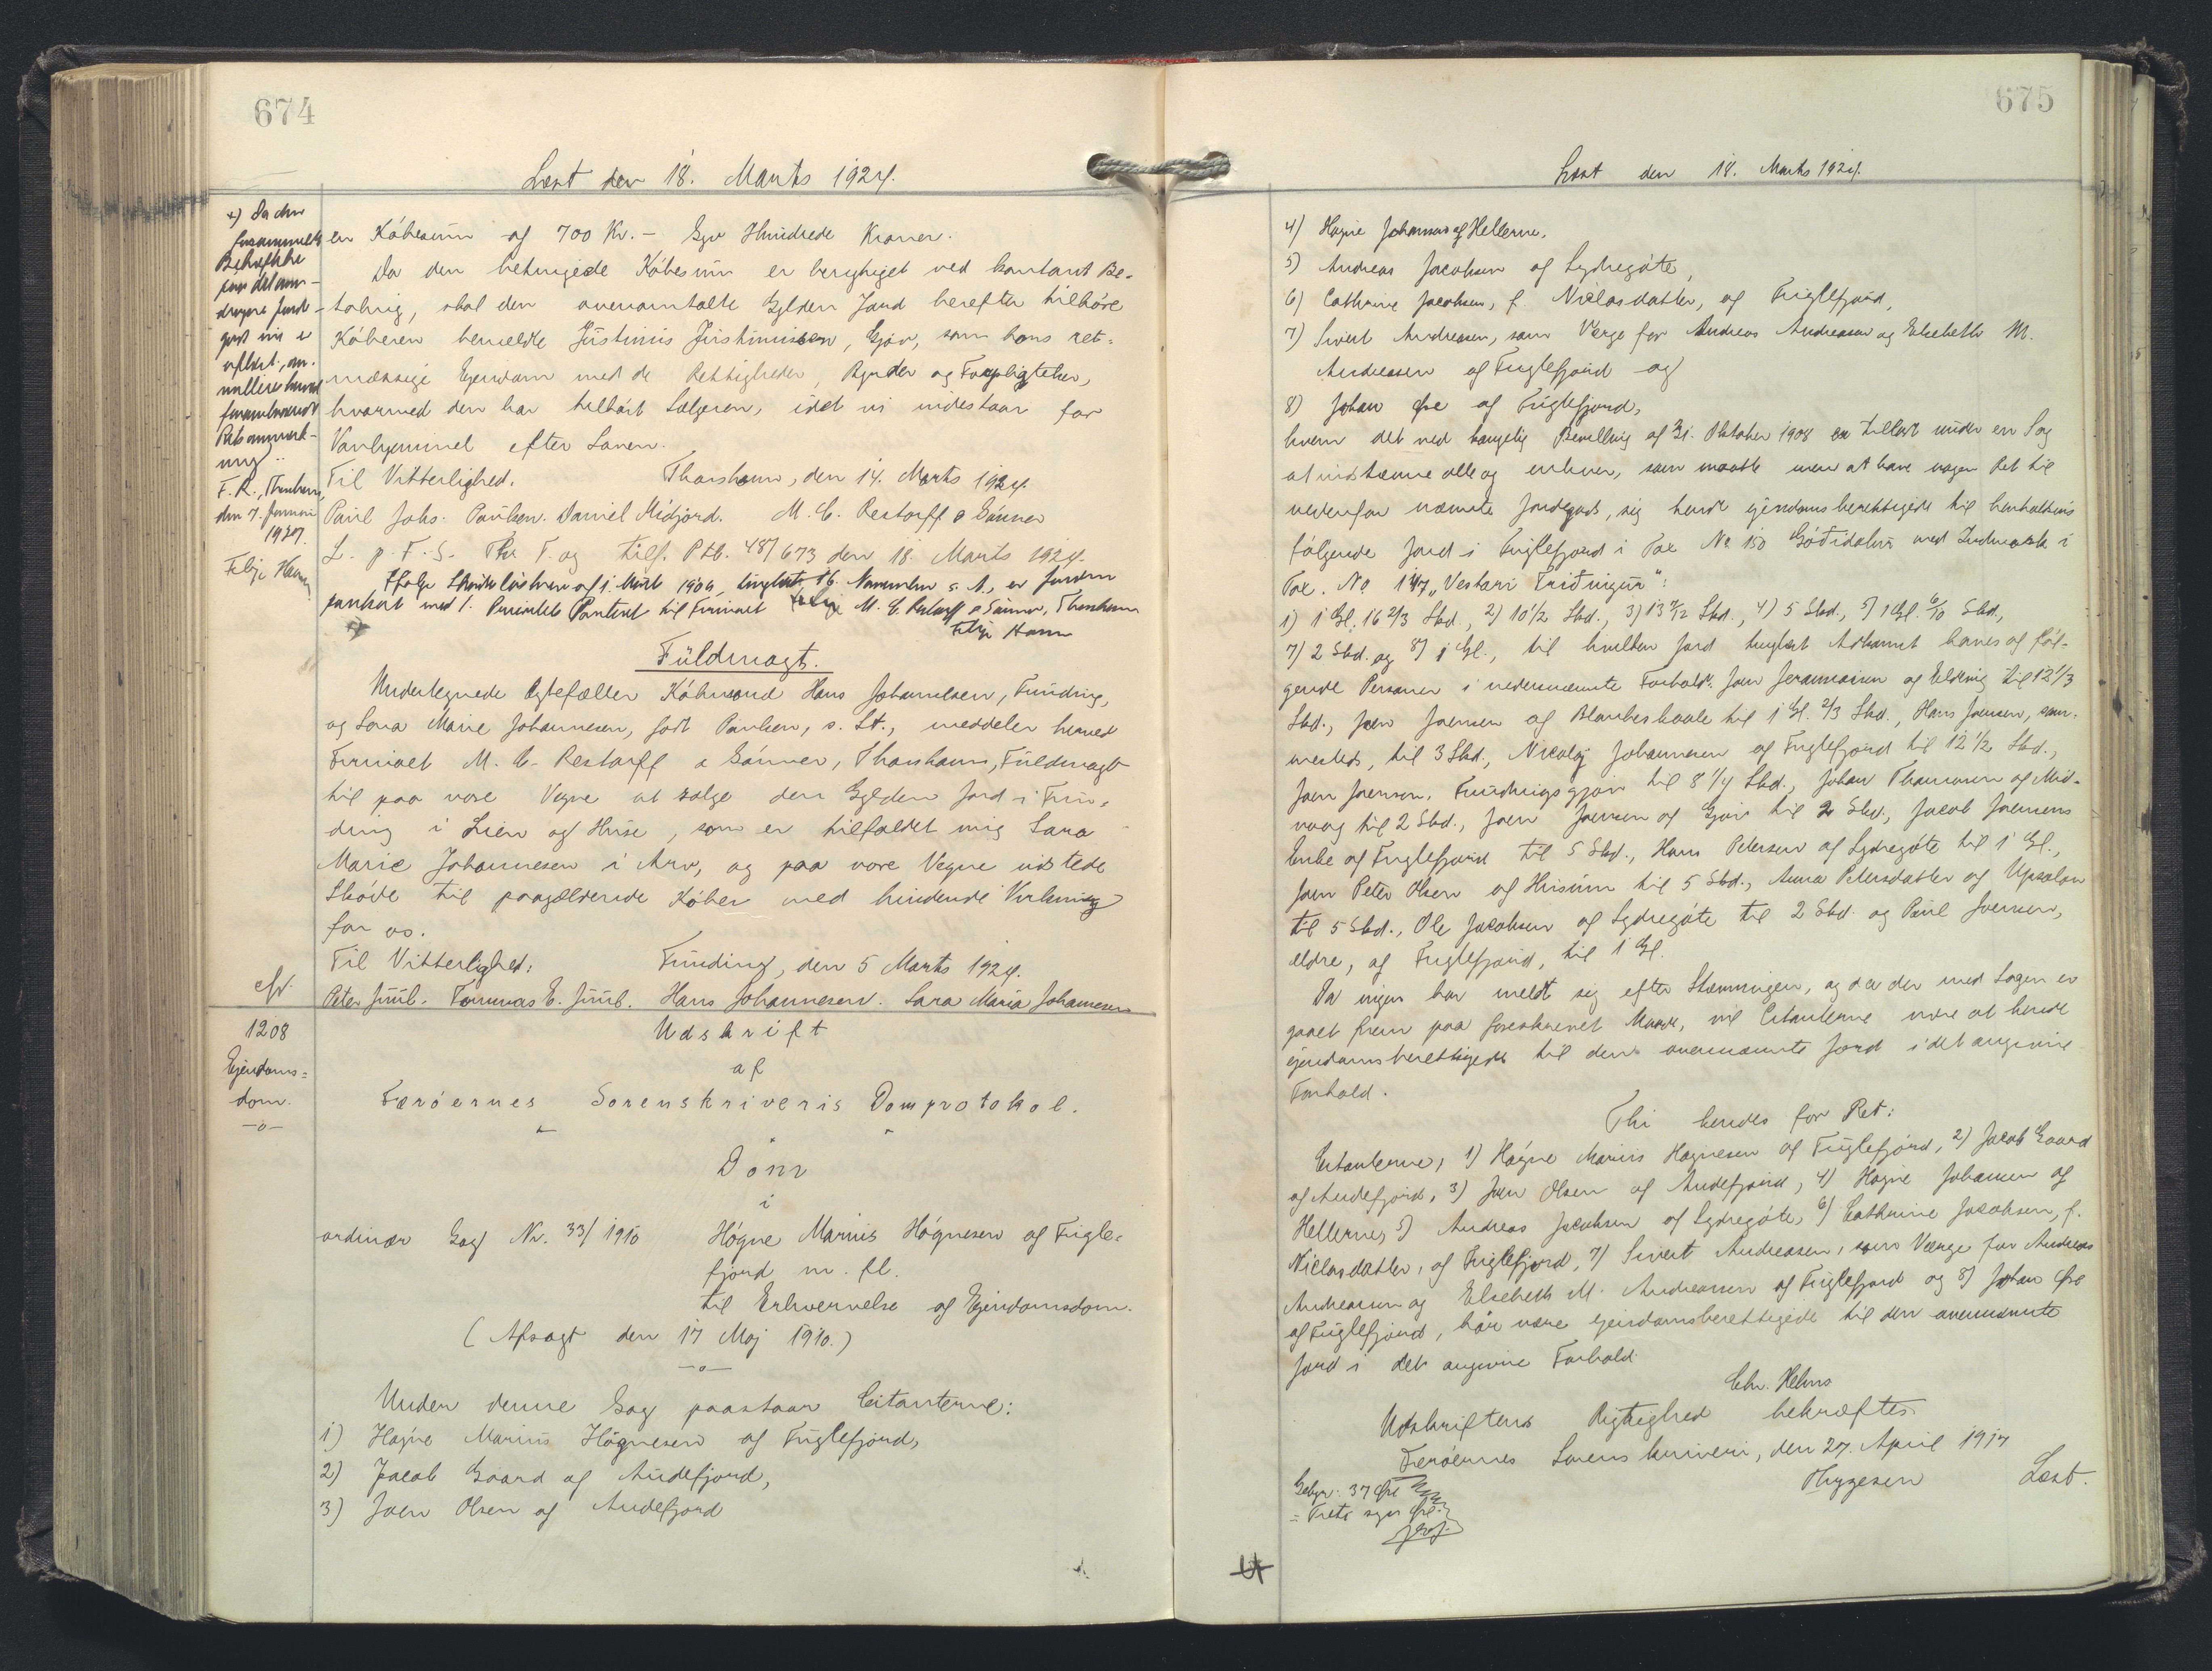 674
Læst den 18. Marts 1924.
x) Da den
Behæftelse
F. R., Thorshavn,
den 7. Januar
1927.
en Købesum af 700 Kr. – Syv Hundrede Kroner.
Da den betingede Købesum er berigtiget ved kontant Be-
taling, skal den ovenomtalte Gylden Jord herefter tilhøre
Køberen bemeldte Justinus Justinussen, Gjov, som hans ret-
mæssige Ejendom med de Rettigheder, Byrder og Forpligtelser,
hvormed den har tilhørt Sælgeren, idet vi indestaar for
Vanhjemmel efter Loven.
Til Vitterlighed. Thorshavn, den 14. Marts 1924.
Paul Johs. Paulsen. Daniel Midjord. M. C. Restorff & Sønner
L. p. F. S. Thi T. og tilf. P tb. 48/673 den 18. Marts 1924.
Ifølge Skadesløsbrev af 1. Marts 1904, tinglæst 16. November s. A., er Jorden
pantsat med 1. Prioritets Panteret til Firmaet M. C. Restorff & Sønner, Thorshavn
Fuldmagt.
Undertegnede Ægtefæller Købmand Hans Johannesen, Funding,
og Sara Marie Johannesen, født Paulsen, s. St., meddeler herved
Firmaet M. C. Restorff & Sønner, Thorshavn, Fuldmagt
til paa vore Vegne at sælge den Gylden Jord i Fun-
ding i Lien og Huse, som er tilfaldet mig Sara
Marie Johannesen i Arv, og paa vore Vegne udstede
Skøde til paagældende Køber med bindende Virkning
for os.
Til Vitterlighed: Funding, den 5 Marts 1924.
Peter Juul. Tommas E. Juul. Hans Johannesen. Sara Maria Johannesen
1208
Ejendoms=
dom.
—o—
Udskrift
af
Færøernes Sorenskriveris Domprotokol.
Dom
i
ordinær Sag Nr. 33/1910 Høgne Marius Høgnesen af Fugle-
fjord m. fl.
til Erhvervelse af Ejendomsdom.
(Afsagt den 17 Maj 1910.)
—o—
Under denne Sag paastaar Citanterne:
1) Høgne Marius Høgnesen af Fuglefjord,
2) Jacob Gaard af Andefjord,
3) Joen Olsen af Andefjord
675
Læst den 18. Marts 1924.
4) Høgne Johansen af Hellerne,
5) Andreas Jacobsen af Sydregøte,
6) Cathrine Jacobsen, f. Niclasdatter, af Fuglefjord,
7) Sivert Andreasen, som Værge for Andreas Andreasen og Elsebeth M.
Andreasen af Fuglefjord og
8) Johan Øre af Fuglefjord,
hvem det ved kongelig Bevilling af 31. Oktober 1908 er tilladt under en Sag
at indstævne alle og enhver, som maatte mene at have nogen Ret til
nedenfor nævnte Jordegods, sig kendt ejendomsberettigede til henholdsvis
følgende Jord i Fuglefjord i Tax No 150 Gøtidalur med Indmark i
Tax. No. 147 „Vestari Triðingur":
1) 1 Gl. 16 2/3 Skd., 2) 10 1/2 Skd., 3) 13 7/12 Skd., 4) 5 Skd., 5) 1 Gl. 6/10 Skd,
7) 2 Skd. og 8) 1 Gl., til hvilken Jord tinglæst Adkomst haves af føl-
gende Personer i nedennævnte Forhold: Joen Joensen af Elduvig til 12 1/3
Skd., Joen Joensen af Blankeskaale til 1 Gl. 2/3 Skd., Hans Joensen, sam-
mesteds, til 3 Skd., Nicolaj Johannesen af Fuglefjord til 12 1/2 Skd.,
Joen Joensen, Fundingsgjov til 8 1/4 Skd., Johan Thomsen af Mid-
vaag til 2 Skd., Joen Joensen af Gjov til 2 Skd., Jacob Joensens
Enke af Fuglefjord til 5 Skd., Hans Petersen af Sydregøte til 1 Gl.,
Joen Peter Olsen af Husum til 5 Skd., Anna Petersdatter af Upsalon
til 5 Skd., Ole Jacobsen af Sydregøte til 2 Skd. og Poul Joensen,
ældre, af Fuglefjord, til 1 Gl.
Da ingen har meldt sig efter Stævningen, og da der med Sagen er
gaaet frem paa foreskrevet Maade, vil Citanterne være at kende
ejendomsberettigede til den ovennævnte Jord i det angivne
Forhold.
Thi kendes for Ret:
Citanterne, 1) Høgne Marius Høgnesen af Fuglefjord, 2) Jacob Gaard
af Andefjord, 3) Joen Olsen af Andefjord, 4) Høgne Johansen af
Hellerne, 5) Andreas Jacobsen af Sydregøte, 6) Cathrine Jacobsen, f.
Niclasdatter, af Fuglefjord, 7) Sivert Andreasen, som Værge for Andreas
Andreasen og Elsebeth M. Andreasen af Fuglefjord og 8) Johan Øre
af Fuglefjord, bør være ejendomsberettigede til den ovennævnte
Jord i det angivne Forhold
Chr. Helms
Udskriftens Rigtighed bekræftes
Færøernes Sorenskriveri, den 27. April 1917
Thygesen Læst.
Gebyr: 37 Øre
= Treti syv Øre.